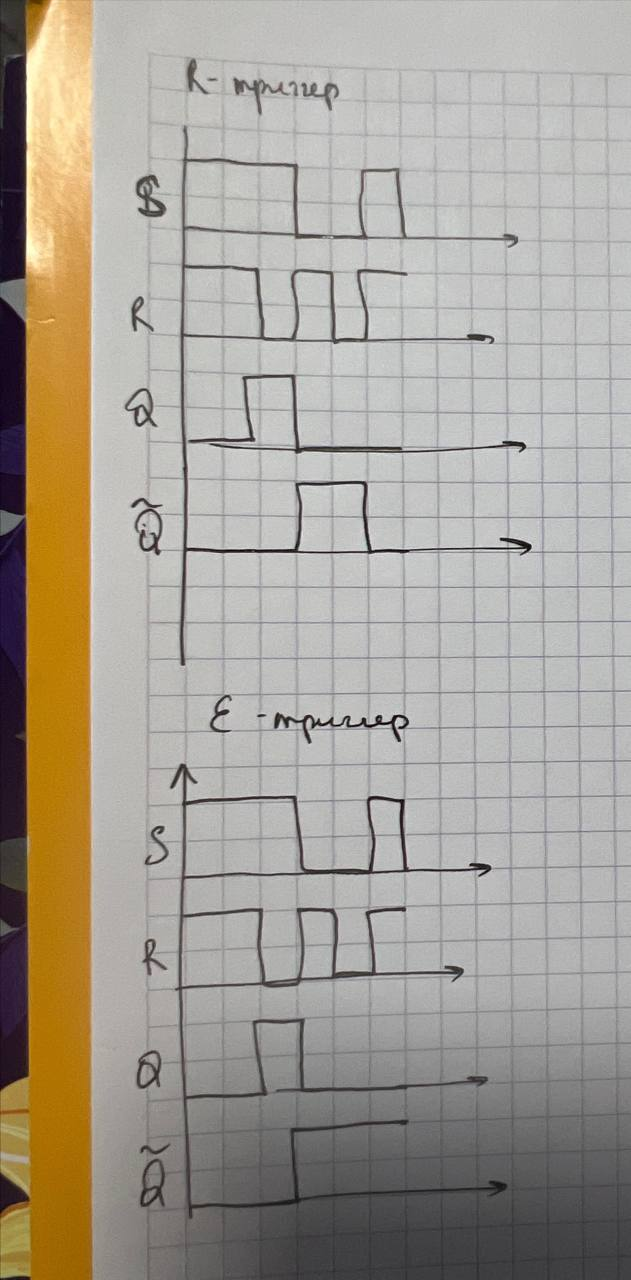 R-триггер
S
R
Q
Q̃
E-триггер
S
R
Q
Q̃